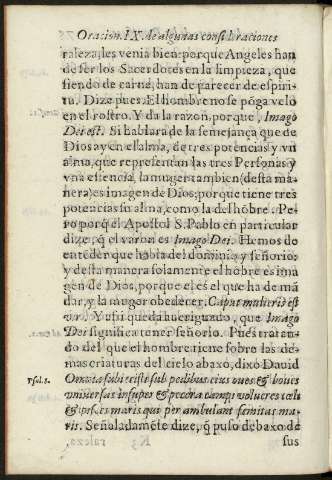 Oracion. IX. de algunas consideraciones
raleza, les venia bien: porque Angeles han
de ser los Sacerdotes en la limpieza, que
siendo de carne, han de parecer de espiri-
tu. Dize pues. El hombre no se pōga velo
en el rostro. Y da la razon, porque, Imago
Dei est. Si hablara de la semejança que de
Dios ay en el alma, de tres potencias y vn
alma, que representan las tres Personas y
vna essencia, la muger tambien (desta ma
nera) es imagen de Dios, porque tiene tres
potencias su alma, como la del hōbre. Pe-
ro porq̃ el Apostol S. Pablo en particular
dize, q̃ el varon es Imago Dei. Hemos de
entēder que habla del dominio y señorio:
y desta manera solamente el hōbre es ima
gen de Dios, porque el es el que ha de mā
dar, y la muger obedecer. Caput mulieris est
vir. Y assi queda aueriguado, que Imago
Dei significa tener señorio. Pues tratan-
do del que el hombre tiene sobre las de-
mas criaturas del cielo abaxo, dixo Dauid
Psal. 8.
Omnia subiecisti sub pedibus eius oues & boues
vniuersas insuper & pecora campi volucres cœli
& pisces maris qui perambulant semitas ma-
ris. Señaladamēte dize, q̃ puso debaxo de
sus